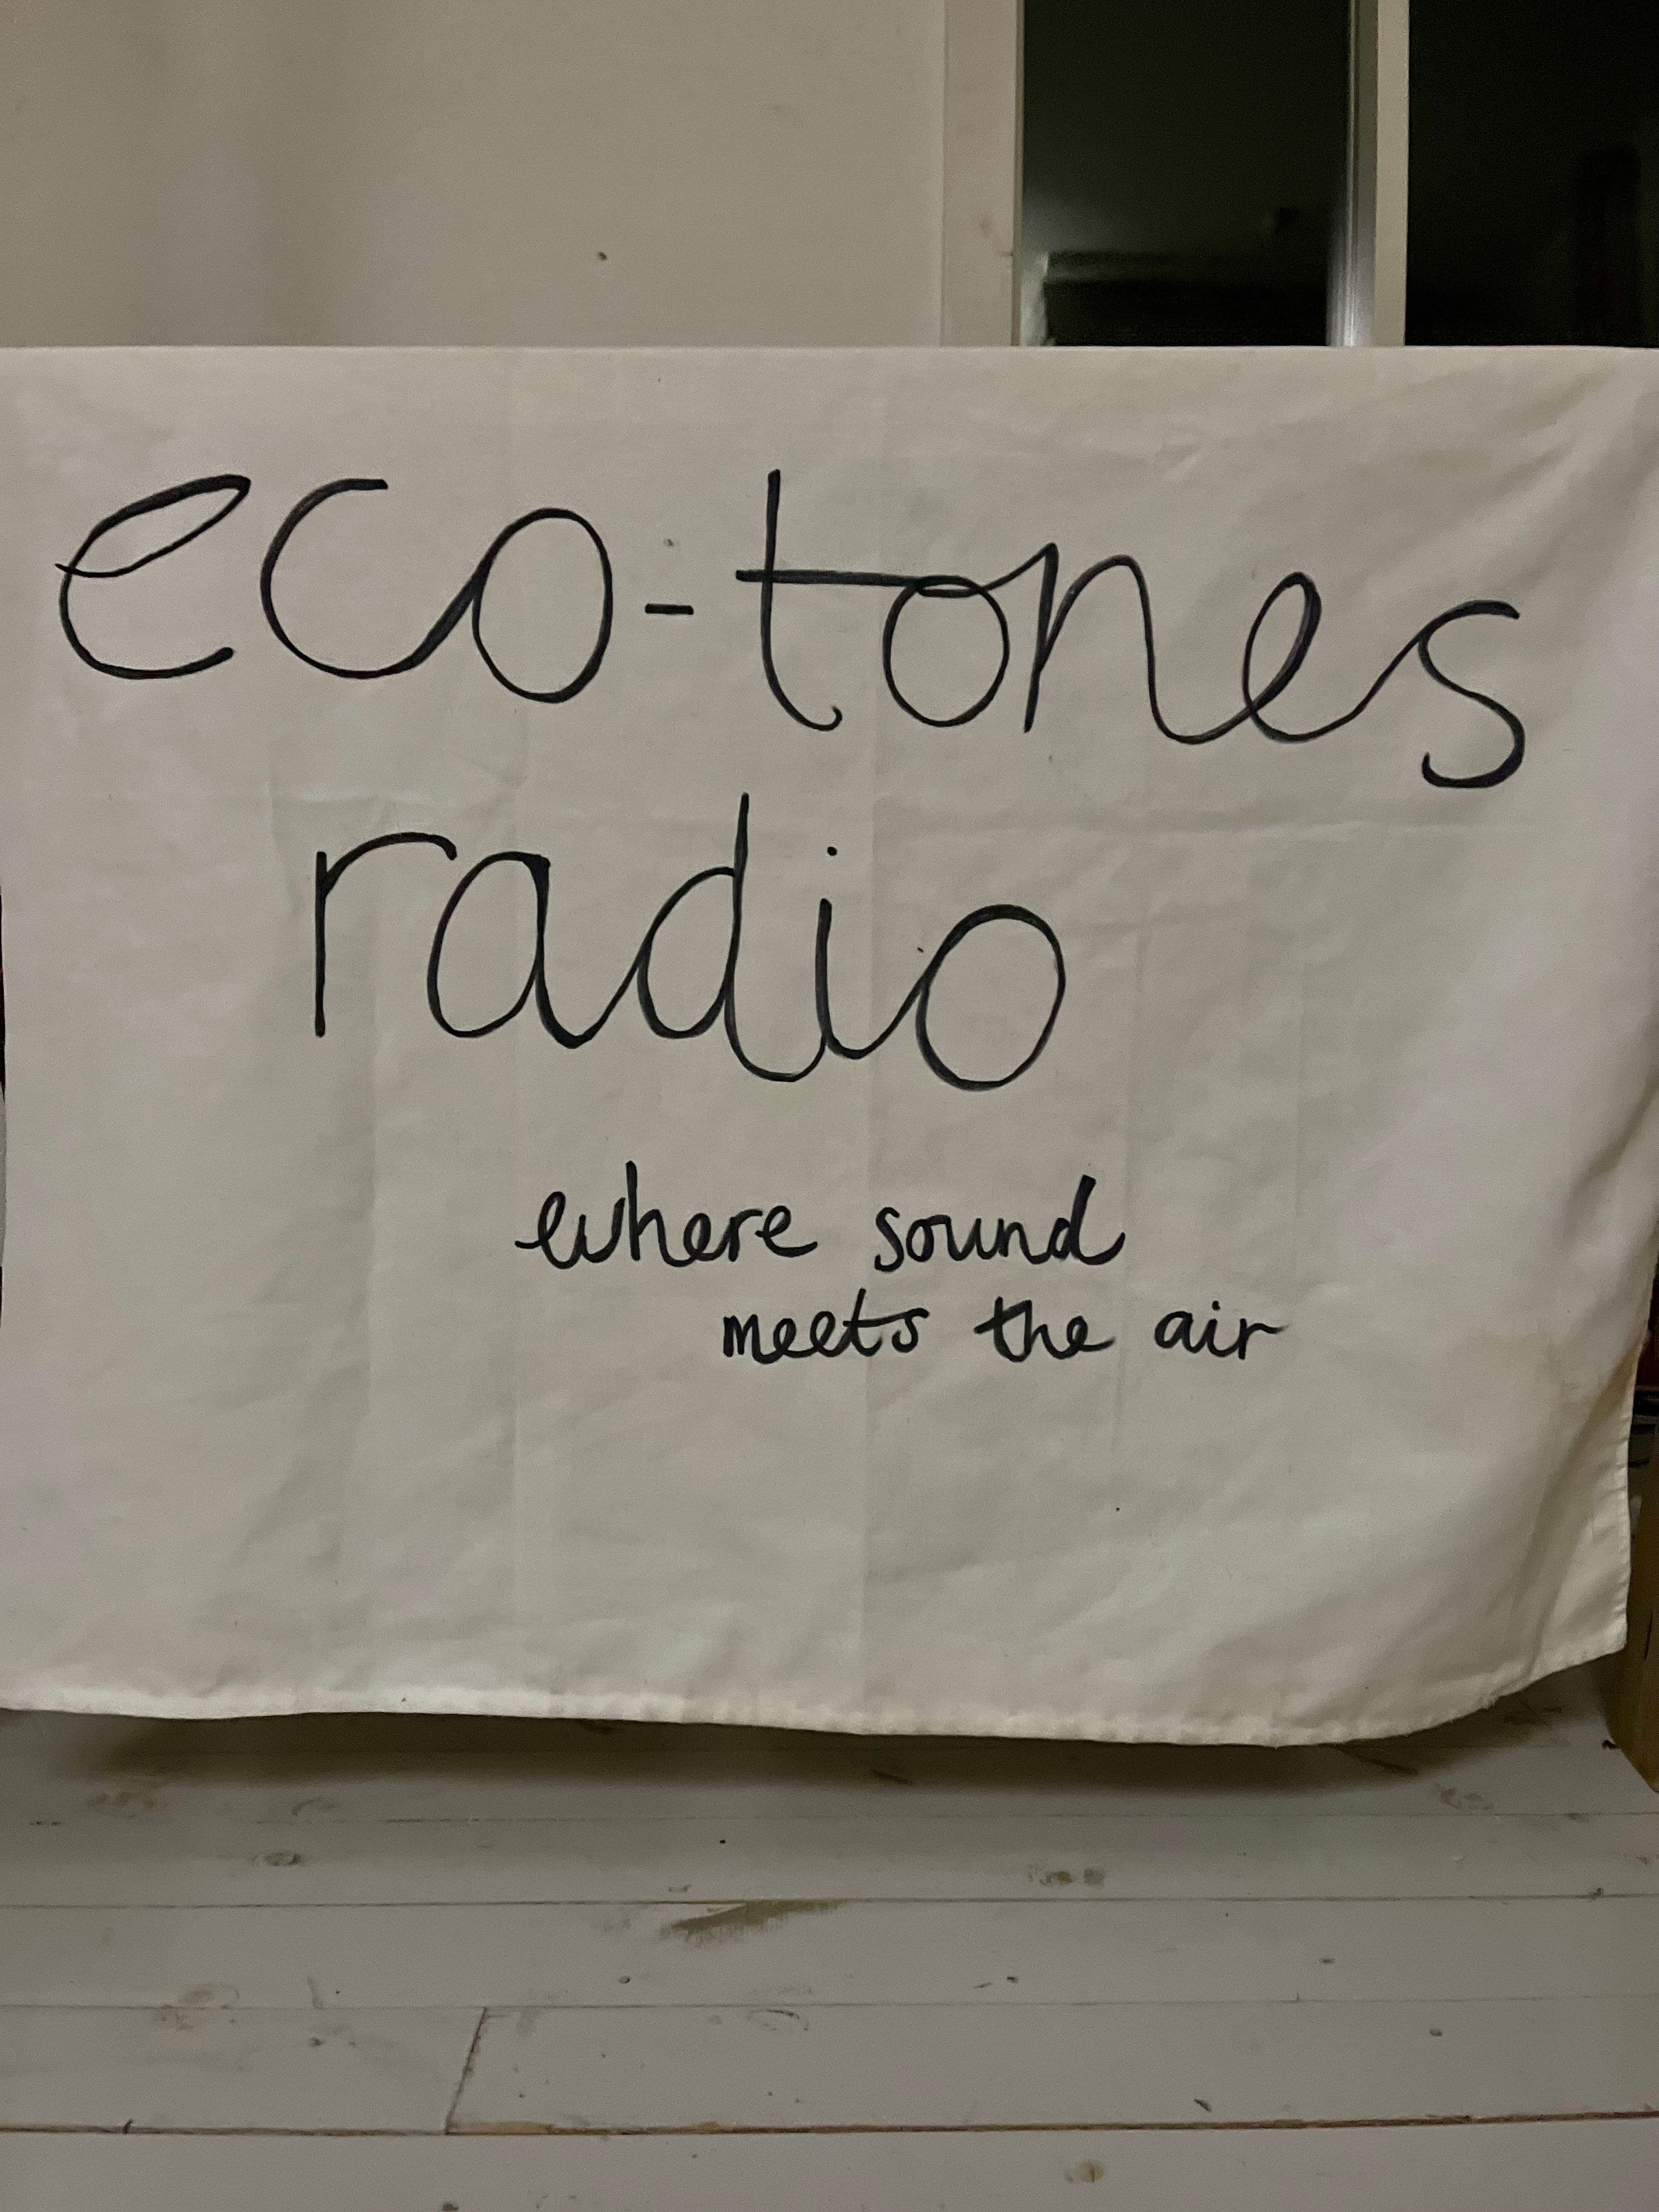 eco-tones
radio
where sound
meets the air